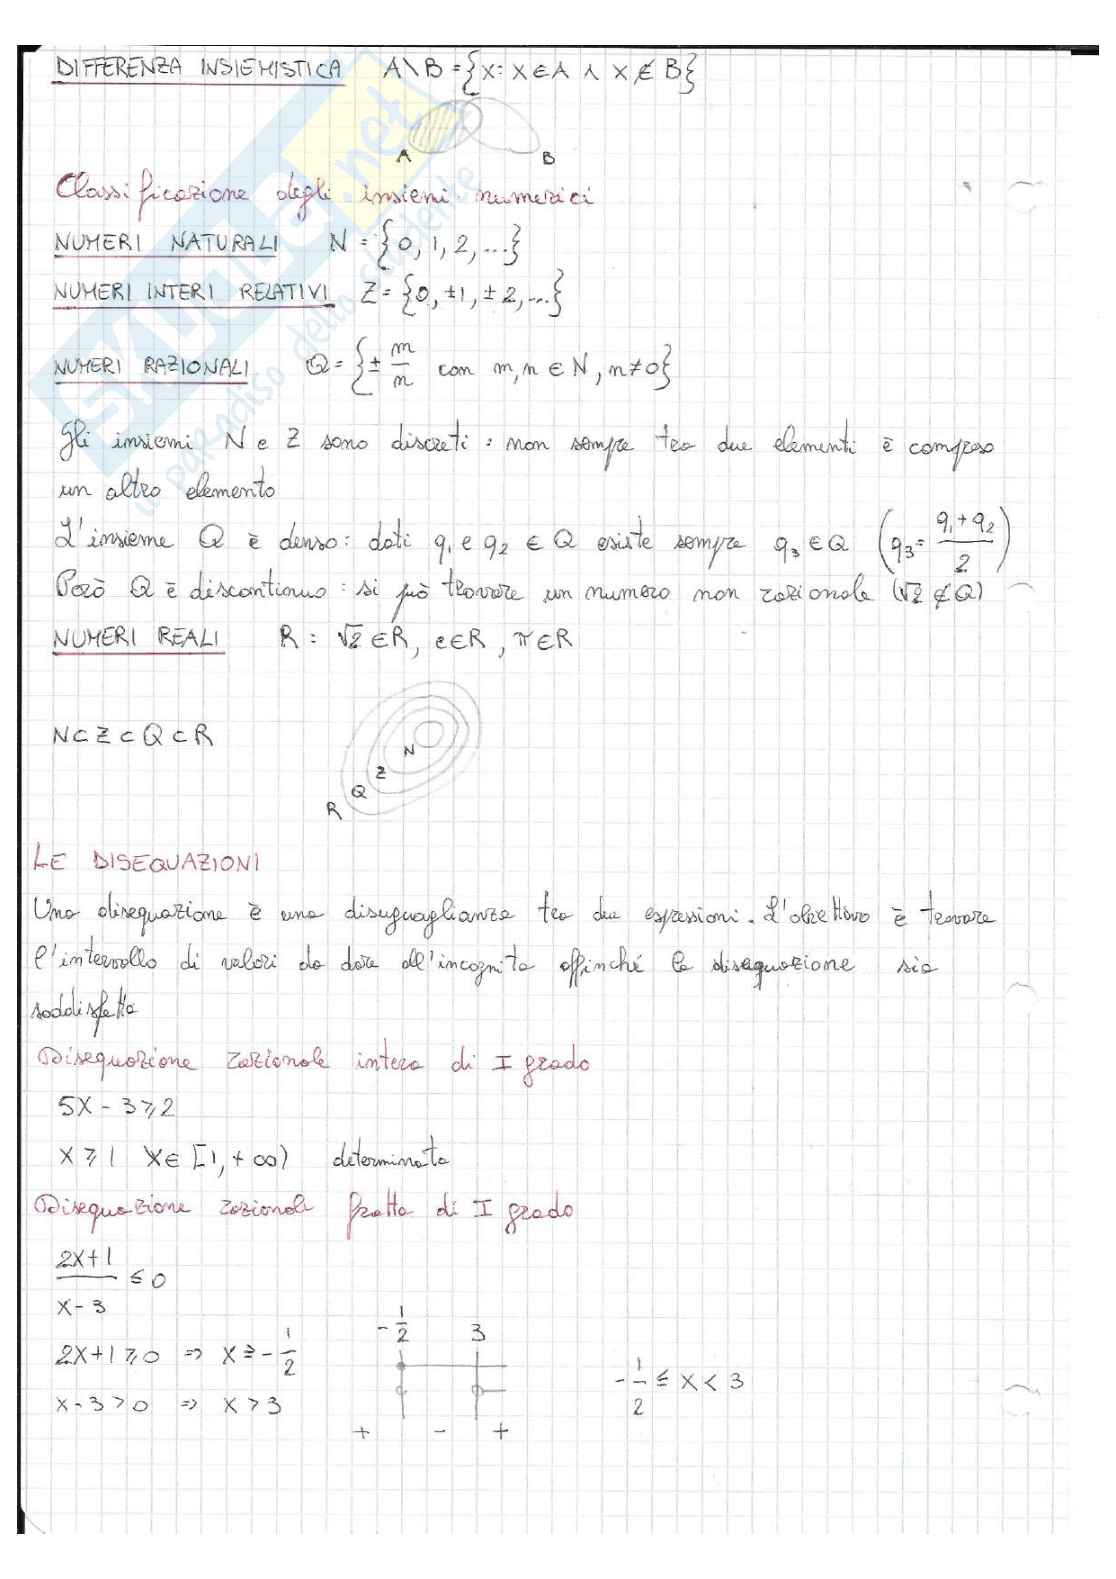 DIFFERENZA INSIEMISTICA A\B = {x: x ∈ A ∧ x ∉ B}
A B
Classificazione degli insiemi numerici
NUMERI NATURALI N = {0, 1, 2, ...}
NUMERI INTERI RELATIVI Z = {0, ±1, ±2, ...}
NUMERI RAZIONALI Q = {± m/n con m, n ∈ N, n ≠ 0}
Gli insiemi N e Z sono discreti: non sempre tra due elementi è compreso
un altro elemento
L'insieme Q è denso: dati q1 e q2 ∈ Q esiste sempre q3 ∈ Q (q3 = (q1 + q2)/2)
Però Q è discontinuo: si può trovare un numero non razionale (√2 ∉ Q)
NUMERI REALI R: √2 ∈ R, e ∈ R, π ∈ R
N ⊂ Z ⊂ Q ⊂ R
N
Z
Q
R
LE DISEQUAZIONI
Una disequazione è una disuguaglianza tra due espressioni. L'obiettivo è trovare
l'intervallo di valori da dare all'incognita affinché la disequazione sia
soddisfatta
Disequazione razionale intera di I grado
5x - 3 ≥ 2
x ≥ 1 x ∈ [1, +∞) determinata
Disequazione razionale fratta di I grado
(2x+1)/(x-3) ≤ 0
-1/2 3
2x+1 ≥ 0 ⇒ x ≥ -1/2
-1/2 ≤ x < 3
x-3 > 0 ⇒ x > 3
+ - +
SKUOLA.net
il paradiso dello studente